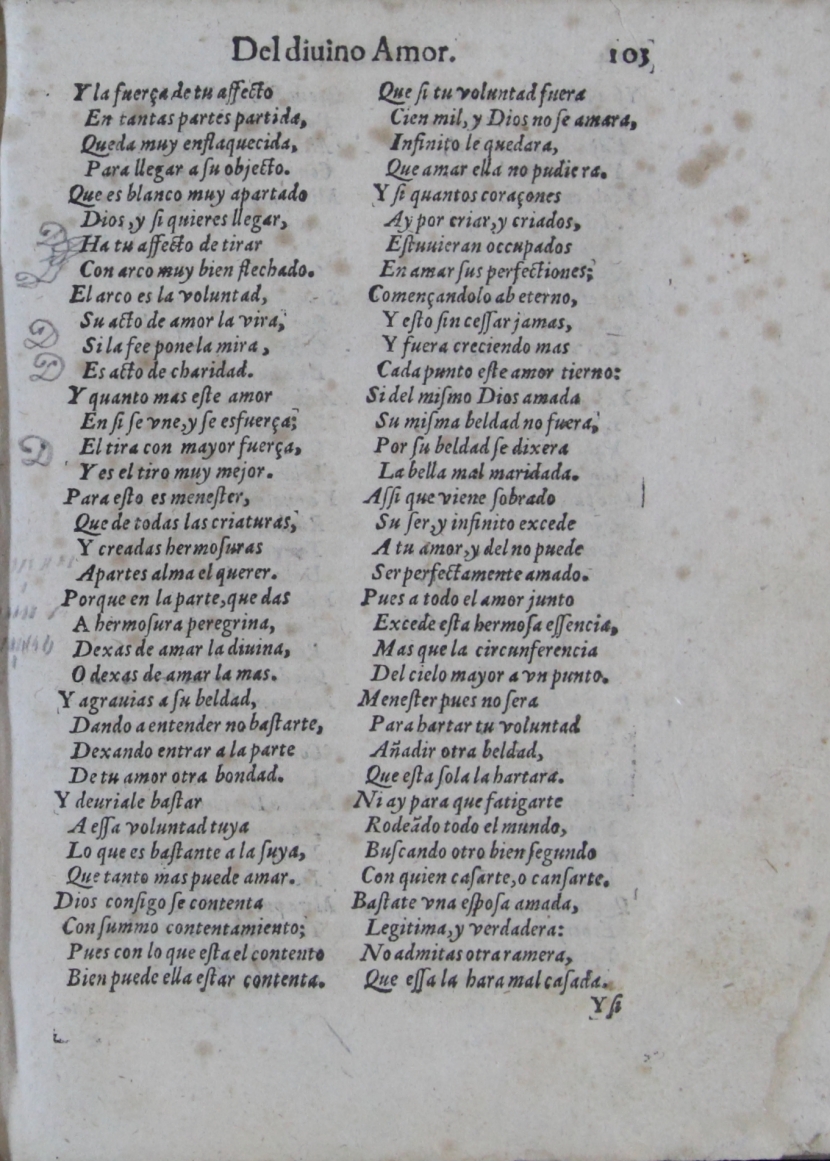 Del diuino Amor. 103
Y la fuerça de tu affecto
En tantas partes partida,
Queda muy enflaquecida,
Para llegar a su objecto.
Que es blanco muy apartado
Dios, y si quieres llegar,
Ha tu affecto de tirar
Con arco muy bien flechado.
El arco es la voluntad,
Su acto de amor la vira,
Si la fee pone la mira,
Es acto de charidad.
Y quanto mas este amor
En si se vne, y se esfuerça;
El tira con mayor fuerça,
Y es el tiro muy mejor.
Para esto es menester,
Que de todas las criaturas,
Y creadas hermosuras
Apartes alma el querer.
Porque en la parte, que das
A hermosura peregrina,
Dexas de amar la diuina,
O dexas de amar la mas.
Y agrauias a su beldad,
Dando a entender no bastarte,
Dexando entrar a la parte
De tu amor otra bondad.
Y deuriale bastar
A essa voluntad tuya
Lo que es bastante a la suya,
Que tanto mas puede amar.
Dios consigo se contenta
Con summo contentamiento;
Pues con lo que esta el contento
Bien puede ella estar contenta.
Que si tu voluntad fuera
Cien mil, y Dios no se amara,
Infinito le quedara,
Que amar ella no pudiera.
Y si quantos coraçones
Ay por criar, y criados,
Estuuieran occupados
En amar sus perfectiones;
Començandolo ab eterno,
Y esto sin cessar jamas,
Y fuera creciendo mas
Cada punto este amor tierno:
Si del mismo Dios amada
Su misma beldad no fuera,
Por su beldad se dixera
La bella mal maridada.
Assi que viene sobrado
Su ser, y infinito excede
A tu amor, y del no puede
Ser perfectamente amado.
Pues a todo el amor junto
Excede esta hermosa essencia,
Mas que la circunferencia
Del cielo mayor a vn punto.
Menester pues no sera
Para hartar tu voluntad
Añadir otra beldad,
Que esta sola la hartara.
Ni ay para que fatigarte
Rodeãdo todo el mundo,
Buscando otro bien segundo
Con quien casarte, o cansarte.
Bastate vna esposa amada,
Legitima, y verdadera:
No admitas otra ramera,
Que essa la hara mal casada.
Y si